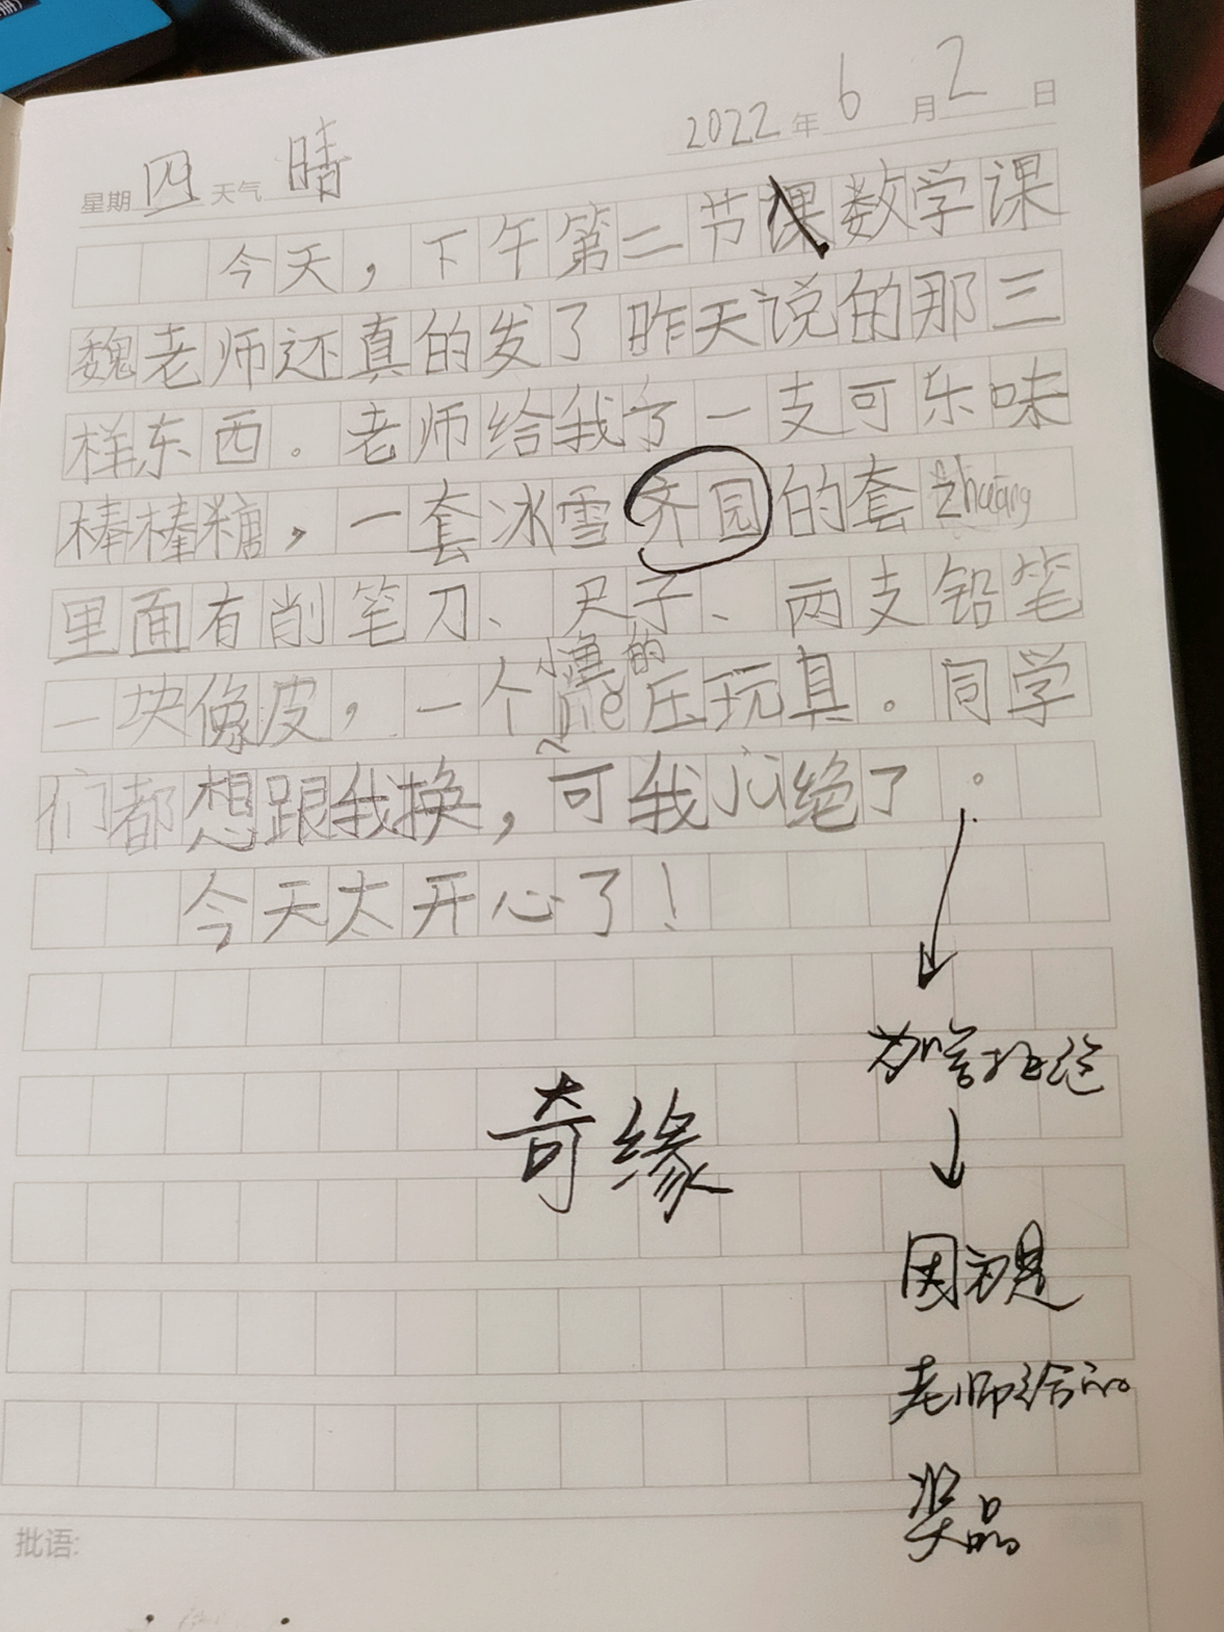 2022年6月2日
星期四 天气 晴
今天,下午第二节课数学课
魏老师还真的发了昨天说的那三
样东西。老师给我了一支可乐味
棒棒糖,一套冰雪齐园的套zhuāng
里面有削笔刀、尺子、两支铅笔
一块像皮,一个 的压玩具。同学
们都想跟我换,可我jù绝了。
今天太开心了!
为啥拒绝
奇缘
因为是
老师给的
奖品
批语: